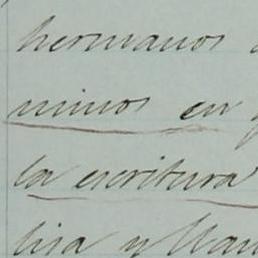 hermanos
minos en
la escritura
lisa y llan